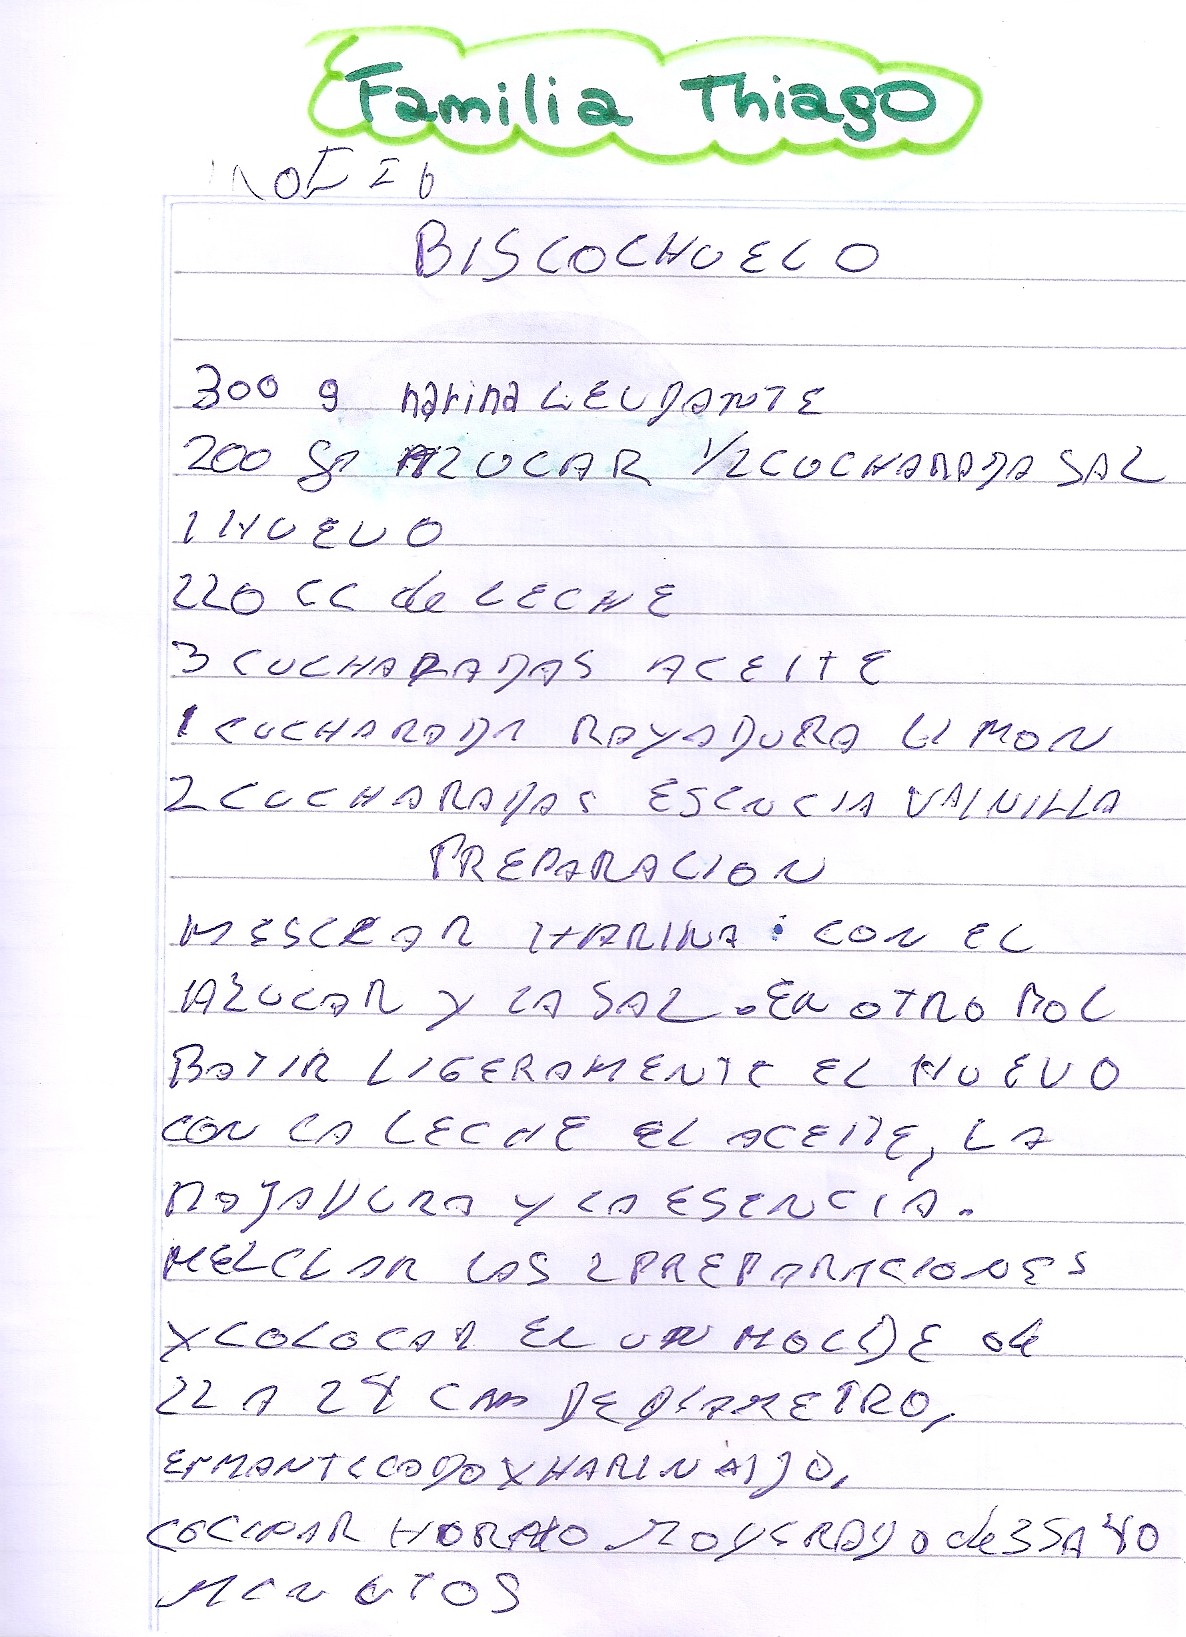 Familia Thiago
BISCOCHUELO
300 g harina LEUDANTE
200 gr AZUCAR 1/2 CUCHARADA SAL
1 HUEVO
220 CC de LECHE
3 CUCHARADAS ACEITE
1 CUCHARADA RAYADURA LIMON
2 CUCHARADAS ESENCIA VAINILLA
PREPARACION
MESCLAR HARINA : CON EL
AZUCAR Y LA SAL . EN OTRO BOL
BATIR LIGERAMENTE EL HUEVO
CON LA LECHE EL ACEITE, LA
RAJADURA Y LA ESENCIA.
MELCLAR LAS 2 PREPARACIONES
Y COLOCAR EN UN MOLDE de
22 A 24 CM DE DIAMETRO,
ENMANTECADO Y HARINADO.
COCINAR HORNO MODERADO de 35 A 40
MINUTOS